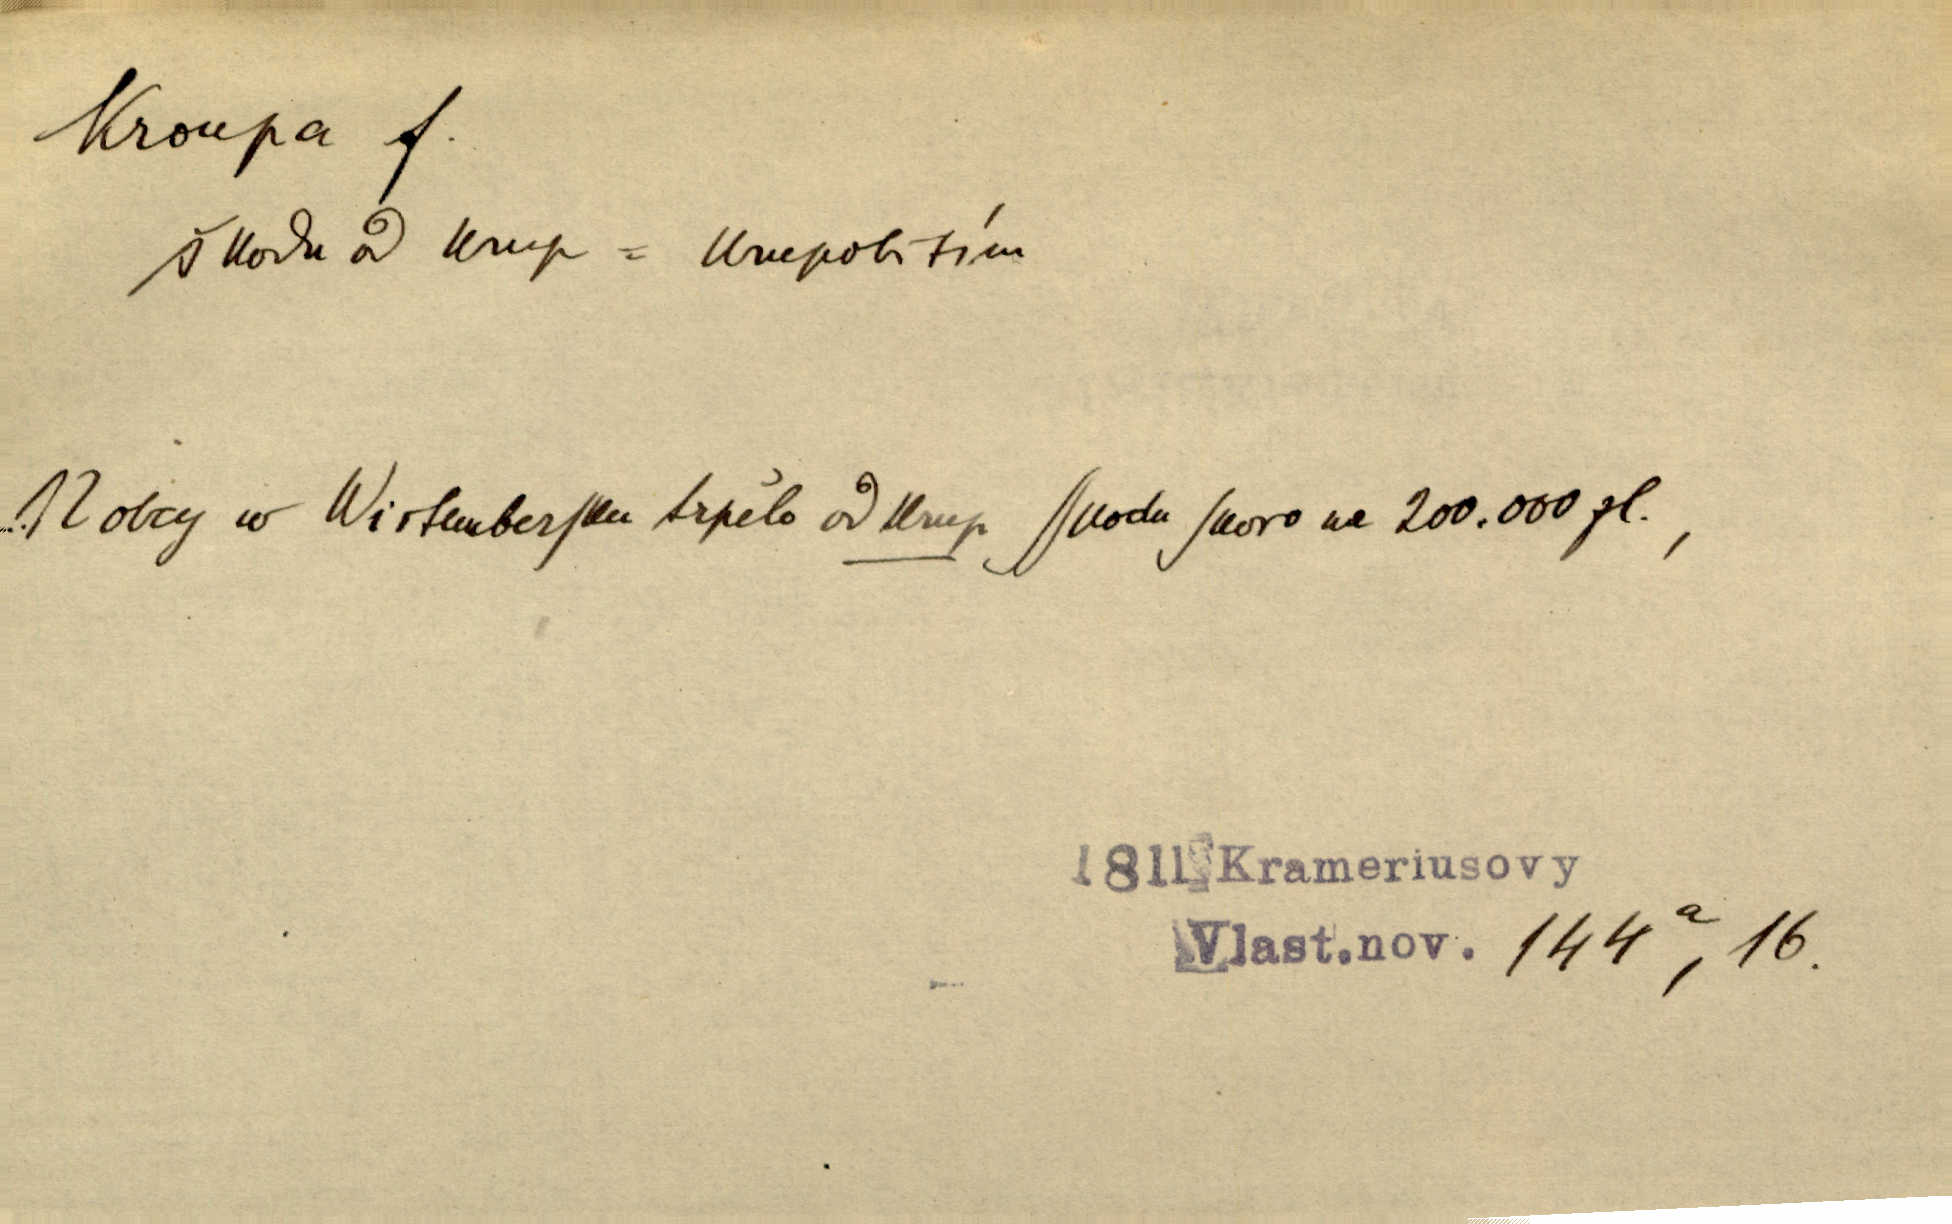 Kroupa f.
škodu od krup = krupobitím
...12 obcy w Wirtemberſku trpělo od krup ſſkodu ſkoro na 200.000 zl.,
1811 Krameriusovy
Vlast.nov. 144ᵃ, 16.